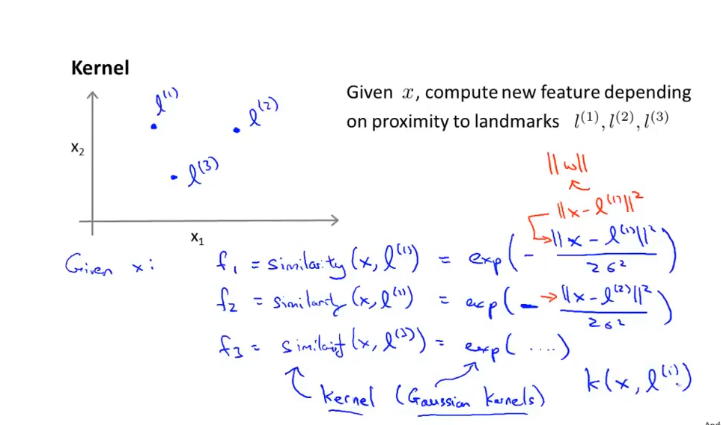 Kernel
Given x, compute new feature depending
on proximity to landmarks l^(1), l^(2), l^(3)
l^(1)
l^(2)
l^(3)
x₂
x₁
||w||
||x - l^(1)||²
Given x: f₁ = similarity(x, l^(1)) = exp(- ||x - l^(1)||² / 2σ²)
f₂ = similarity(x, l^(1)) = exp(- ||x - l^(2)||² / 2σ²)
f₃ = similarity(x, l^(3)) = exp( ....)
kernel (Gaussian kernels)
k(x, l^(i))